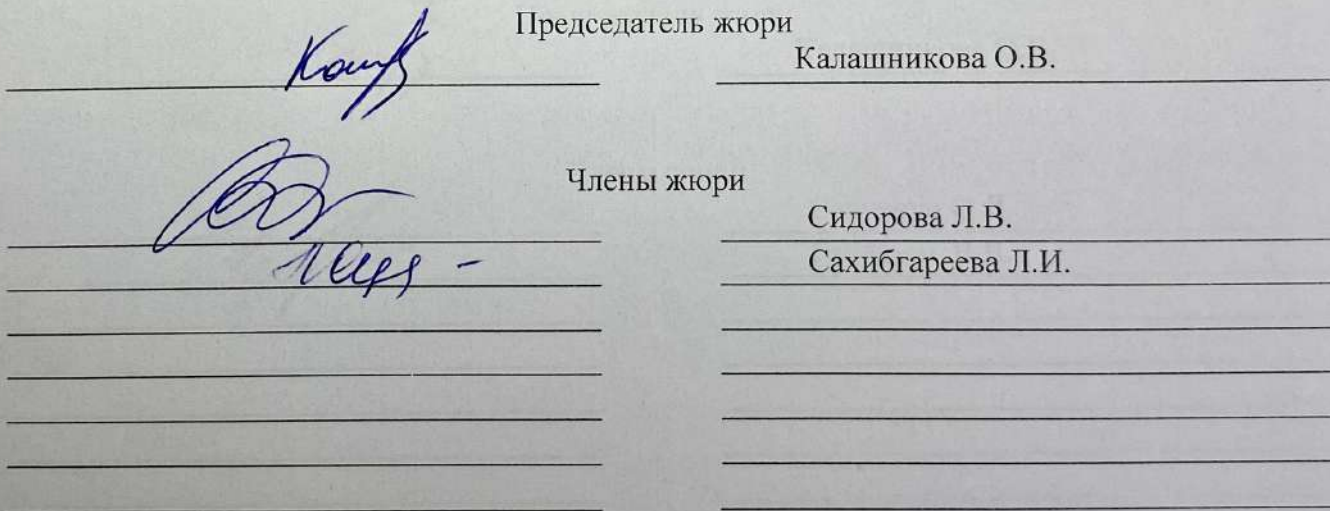 Председатель жюри
Калашникова О.В.
Члены жюри
Сидорова Л.В.
Сахибгареева Л.И.